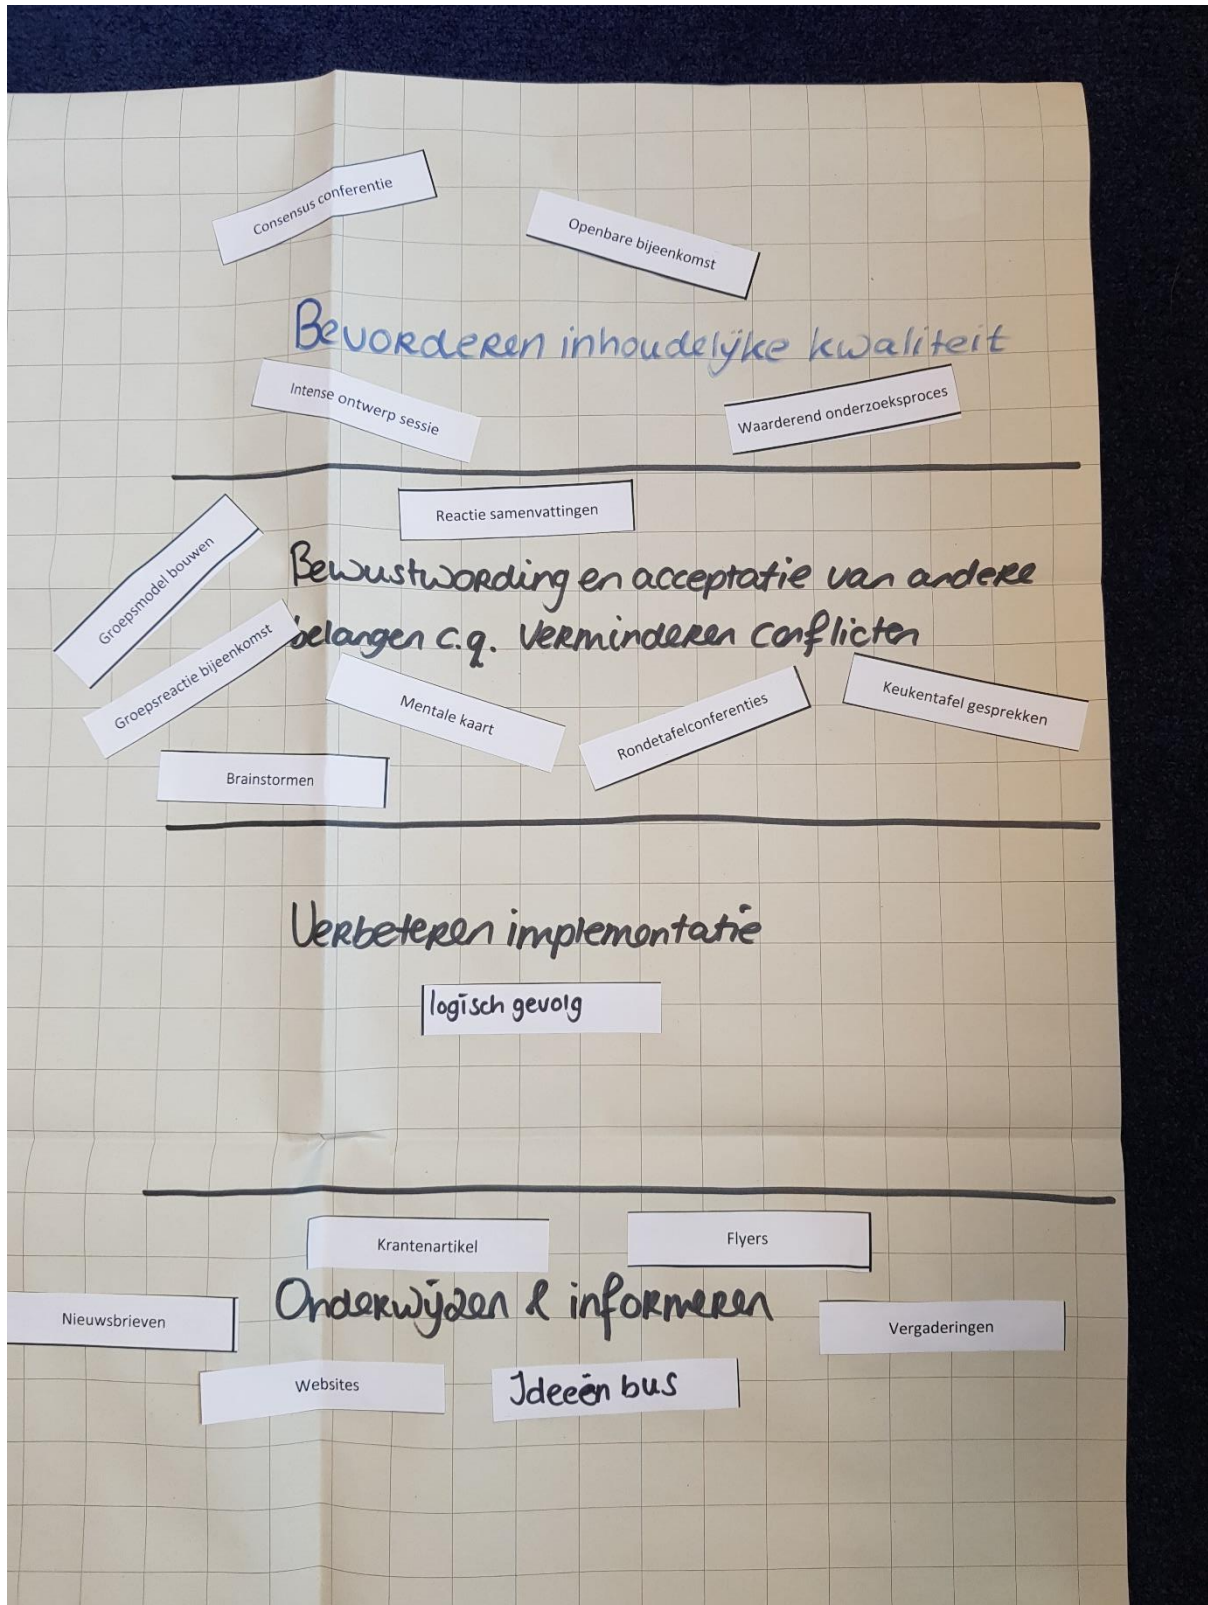 Consensus conferentie
Openbare bijeenkomst
Bevorderen inhoudelijke kwaliteit
Intense ontwerp sessie
Waarderend onderzoeksproces
Reactie samenvattingen
Groepsmodel bouwen
Bewustwording en acceptatie van andere
belangen c.q. verminderen conflicten
Groepsreactie bijeenkomst
Mentale kaart
Rondetafelconferenties
Keukentafel gesprekken
Brainstormen
Verbeteren implementatie
logisch gevolg
Krantenartikel
Flyers
Onderwijzen & informeren
Nieuwsbrieven
Vergaderingen
Websites
Ideeën bus